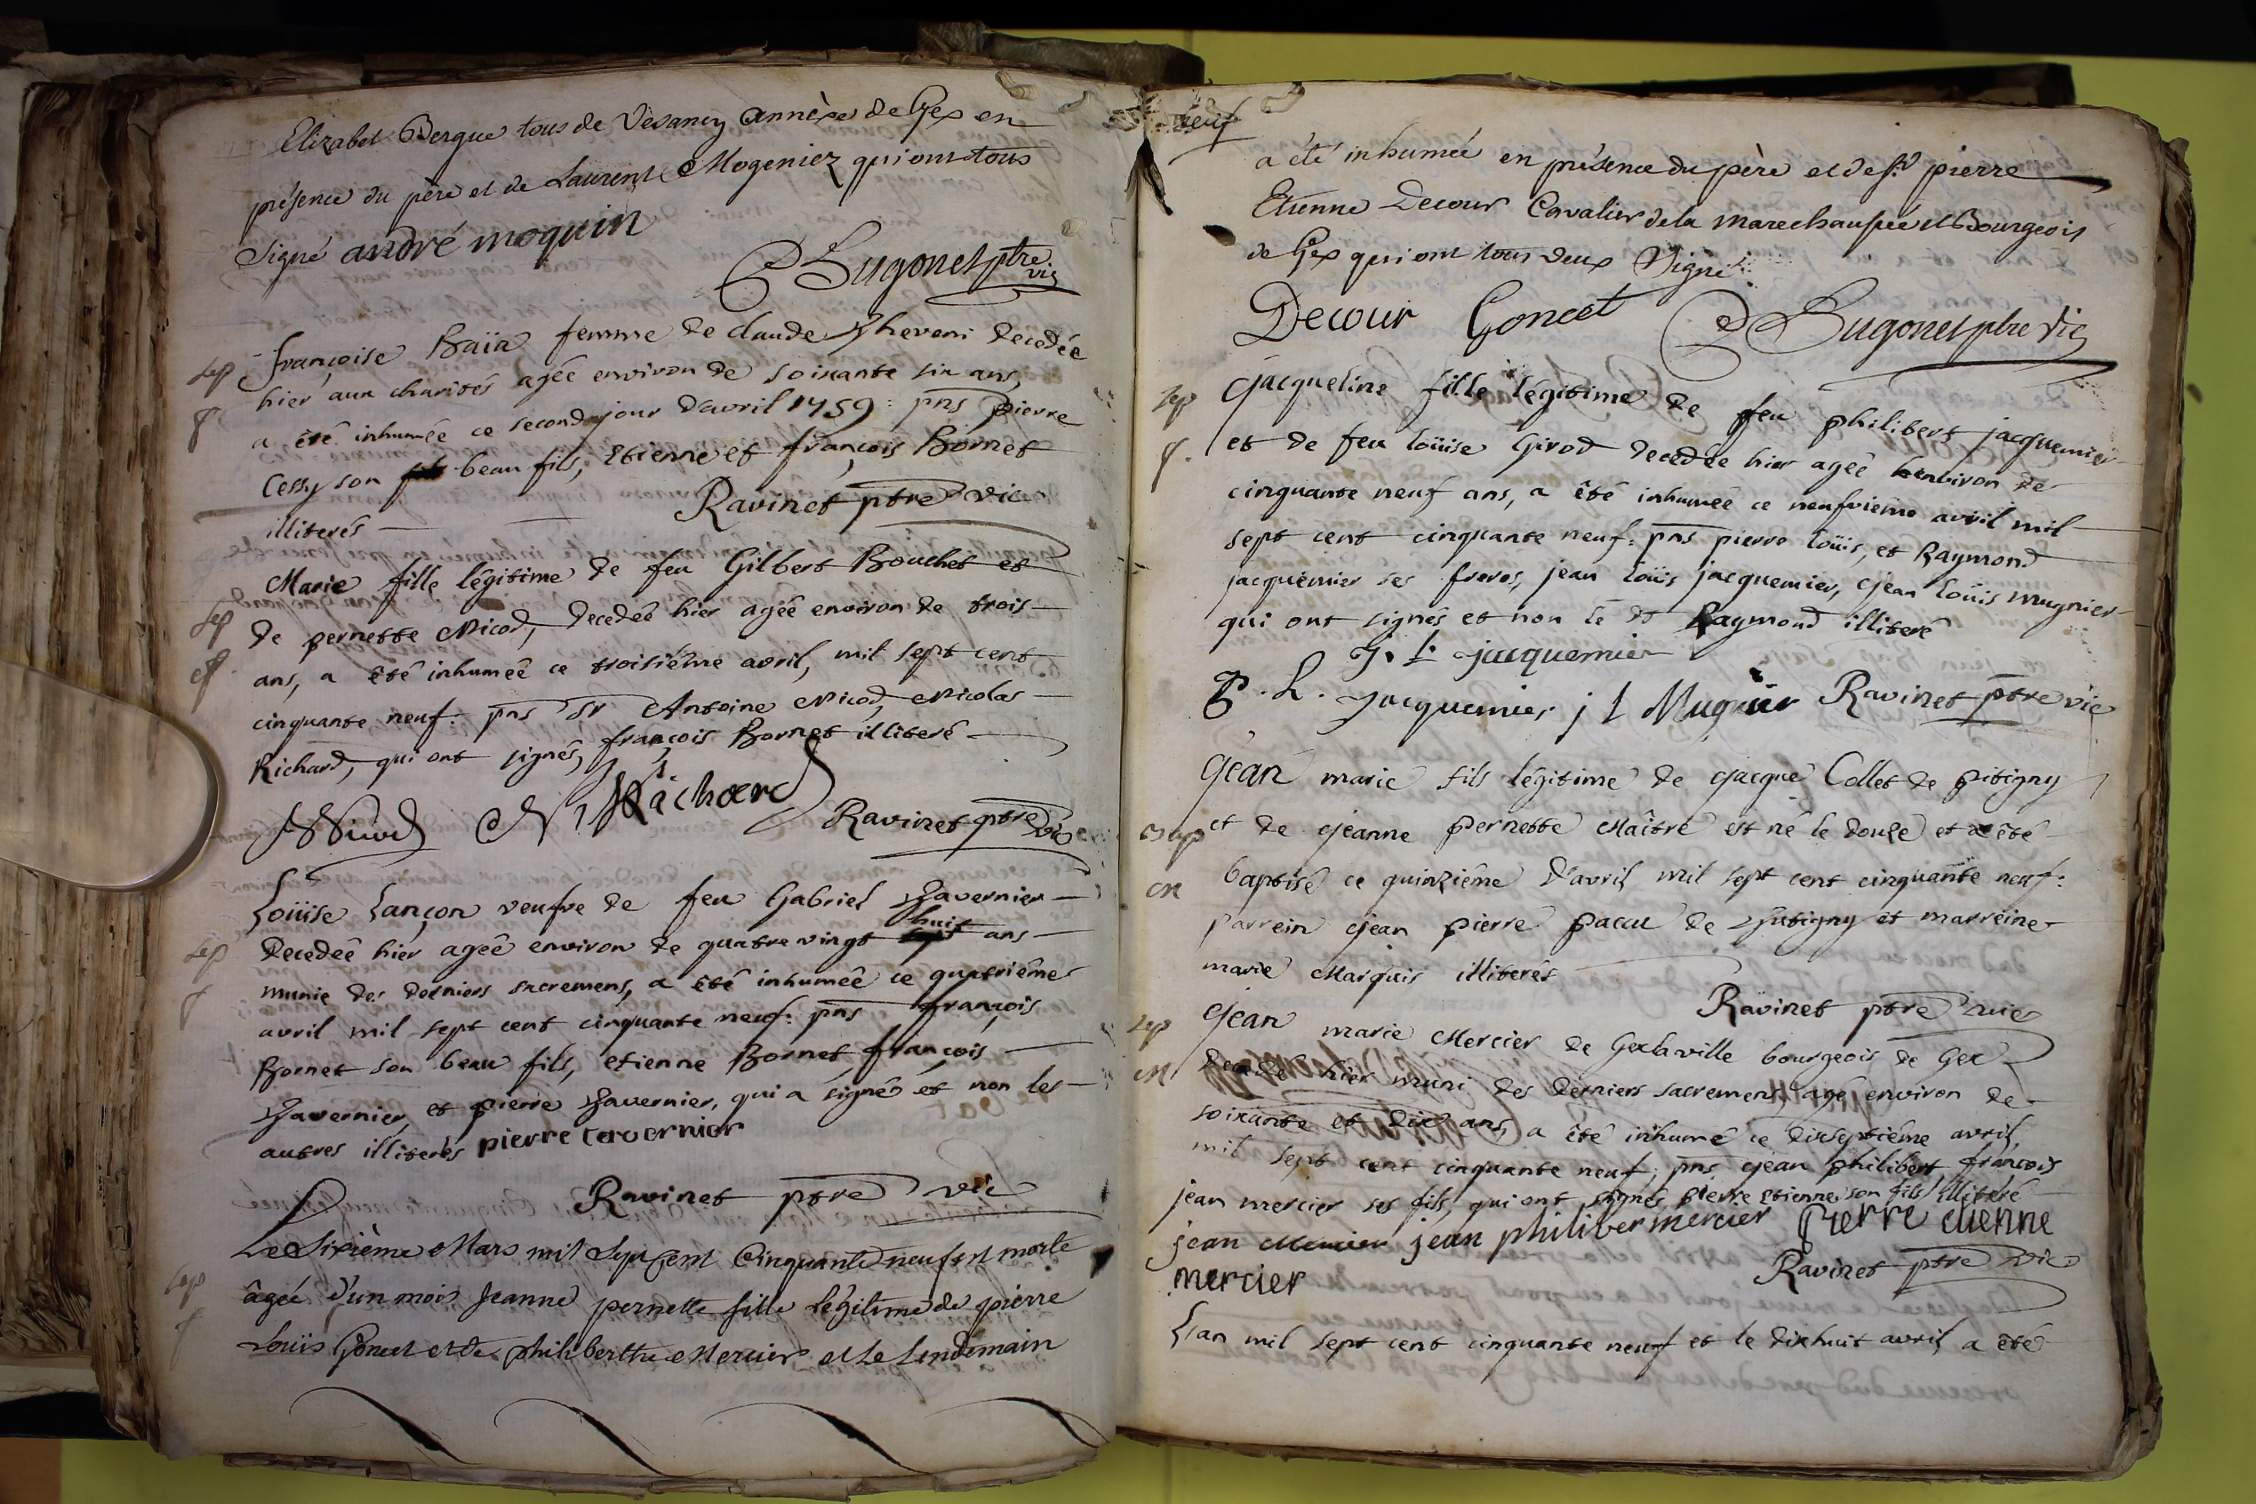 Elizabet Bergue tous de Vesancy annèxe de Gex en
présence du père et de Laurent Mogeniez qui ont tous
signé andré moquin
Hugonet ptre vic
sep
f
françoise Baïa femme de claude Theveni decedée
hier aux charités agée environ de soixante six ans,
a été inhumée ce second jour d'avril 1759: pns pierre
Cessy son beau fils, Etienne et françois Bornet
illiterés Ravinet ptre vic
sep
f
Marie fille légitime de feu Gilbert Bouchet et
de pernette Nicod, decedeé hier agée environ de trois
ans, a été inhumeé ce troisiême avril, mil sept cent
cinquante neuf: pns Sr Antoine Nicod, Nicolas
Richard, qui ont signés, françois Bornet illiteré
Nicod N Richard Ravinet ptre vic
sep
f
Loüise Lançon veufve de feu Gabriel Tavernier
decedeé hier ageé environ de quatre vingt huit ans
munie des derniers sacremens, a été inhumeé ce quatriême
avril mil sept cent cinquante neuf: pns françois
Bornet son beau fils, etienne Bornet, françois
Tavernier, et pierre Tavernier, qui a signé et non les
autres illiterés pierre tavernier
Ravinet ptre vic
sep
f
Le Sixième Mars mil Sept Cent Cinquante neuf est morte
âgée d'un mois Jeanne pernette fille Légitime de pierre
Louïs Goncet et de philiberthe Mercier et Le Lendemain
neuf
a été inhumée en présence du père et de Sr pierre
Etienne Decour Cavalier de la marechaussée et Bourgeois
de Gex qui ont tous deux Signé
Decour Goncet Hugonet ptre vic
sep
f.
Jacqueline fille légitime de feu philibert jacquemier
et de feu loüise Girod decedée hier agée environ de
cinquante neuf ans, a été inhumeé ce neufvieme avril mil
sept cent cinquante neuf: pns pierre loüis, et Raymond
jacquemier ses freres, jean loüis jacquemier, jean loüis mugnier
qui ont signés et non le dt Raymond illiteré
J. L. jacquemier
P. L. jacquemier j l Mugnier Ravinet ptre vic
bap
m
Jean marie fils légitime de jacque Collet de pitigny
et de jeanne pernette Maître est né le douze et a été
baptisé ce quinziême d'avril mil sept cent cinquante neuf:
parrein jean pierre paccu de pitigny et marreine
marie Marquis illiterés
Ravinet ptre vic
sep
m
Jean marie Mercier de Gexlaville bourgeois de Gex
decedé hier muni des derniers sacremens, agé environ de
soixante et dix ans, a été inhumé ce dixseptiême avril,
mil sept cent cinquante neuf; pns jean philibert françois
jean mercier ses fils, qui ont signés, pierre etienne son fils illitéré
jean Mercier jean philiber mercier Pierre etienne
mercier Ravinet ptre vic
L'an mil sept cent cinquante neuf et le dixhuit avril a été